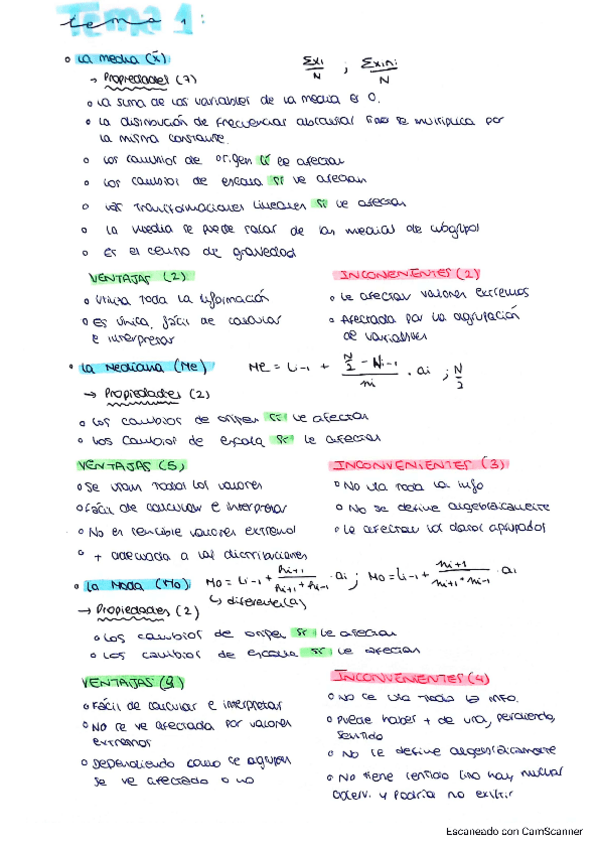 tema 1:
• La media (x̄) Σxi/N ; Σxi.ni/N
→ Propiedades (7)
• La suma de las variables de la media es 0.
• La distribución de frecuencias absolutas no se multiplica por
la misma constante.
• Los cambios de origen sí le afectan
• Los cambios de escala sí le afectan
• Las transformaciones lineales sí le afectan
• La media se puede sacar de las medias de subgrupos
• Es el centro de gravedad
VENTAJAS (2)
• Utiliza toda la información
• Es única, fácil de calcular
e interpretar
INCONENIENTES (2)
• Le afectan valores extremos
• Afectada por la agrupación
de variables
• La Mediana (Me) Me = Li-1 + (N/2 - Ni-1)/ni . ai ; N/2
→ Propiedades (2)
• Los cambios de origen sí le afectan
• Los cambios de escala sí le afectan
VENTAJAS (5)
• Se usan todos los valores
• Fácil de calcular e interpretar
• No es sensible valores extremos
• + adecuada a las distribuciones
INCONVENIENTES (3)
• No usa toda la info
• No se define algebraicamente
• Le afectan los datos agrupados
• La Moda (Mo) Mo = Li-1 + hi+1/(hi+1 + hi-1) . ai ; Mo = Li-1 + ni+1/(ni+1 + ni-1) . ai
↳ diferente(a)
→ Propiedades (2)
• Los cambios de origen sí le afectan
• Los cambios de escala sí le afectan
VENTAJAS
• Fácil de calcular e interpretar
• No se ve afectada por valores
extremos
• Dependiendo como se agrupan
se ve afectado o no
INCONVENIENTES (4)
• No se usa toda la info.
• Puede haber + de una, perdiendo
sentido
• No se define algebraicamente
• No tiene sentido si no hay muchas
observ. y podría no existir
Escaneado con CamScanner